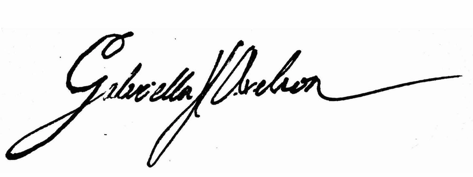 Gabriella H Axelson